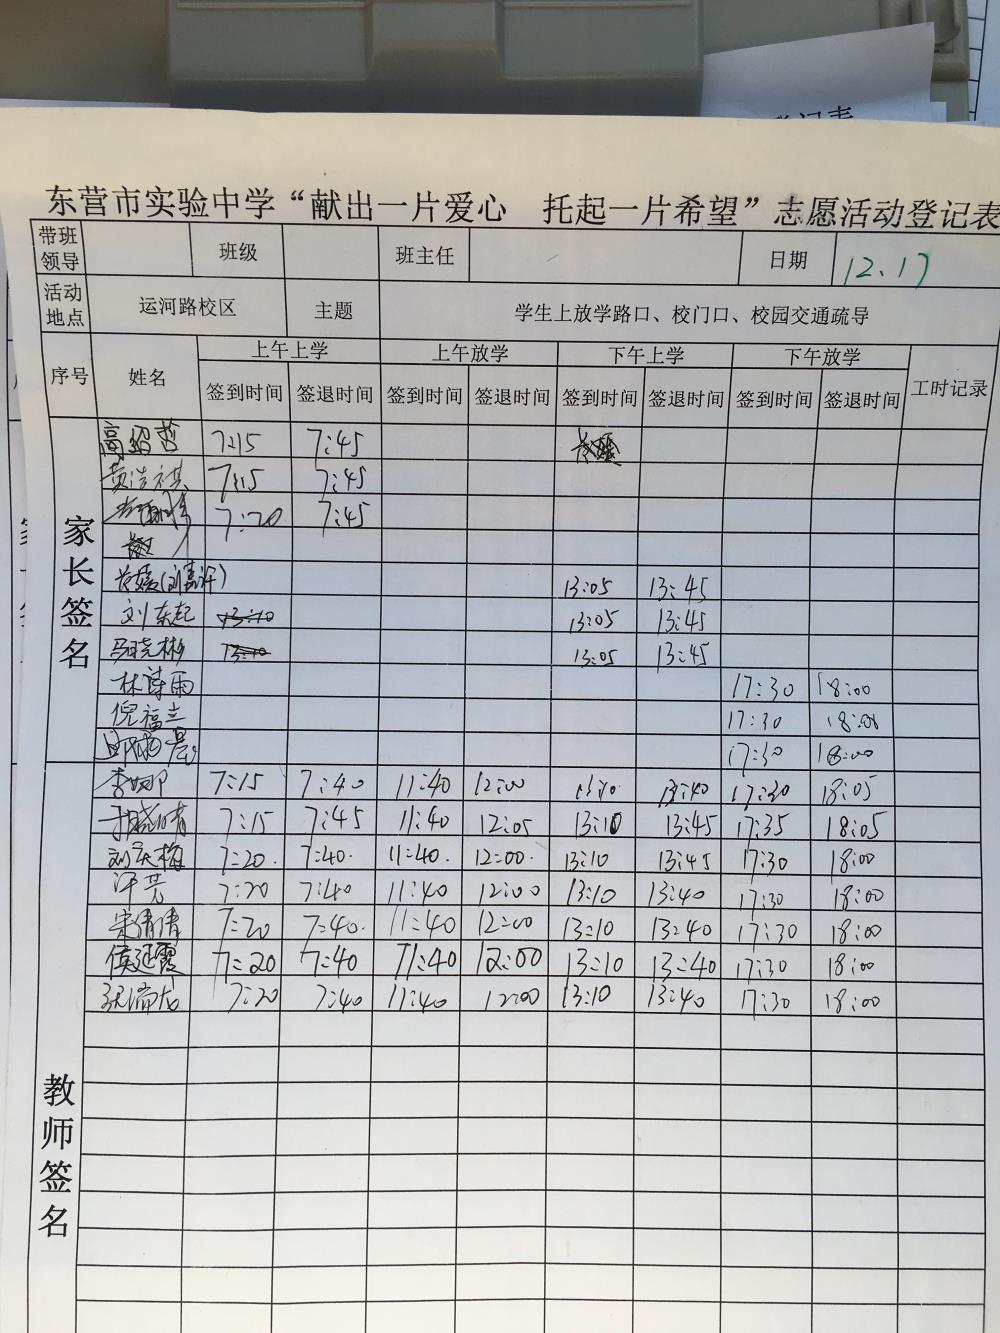 东营市实验中学“献出一片爱心 托起一片希望”志愿活动登记表
带班领导 班级 班主任 日期 12.17
活动地点 运河路校区 主题 学生上放学路口、校门口、校园交通疏导
序号 姓名 上午上学 上午放学 下午上学 下午放学 工时记录
签到时间 签退时间 签到时间 签退时间 签到时间 签退时间 签到时间 签退时间
家长签名
高绍哲 7:15 7:45
黄浩祺 7:15 7:45
7:20 7:45
(刘嘉译) 13:05 13:45
刘东起 13:10 13:05 13:45
马晓彬 13:10 13:05 13:45
林诗雨 17:30 18:00
倪福兰 17:30 18:00
17:30 18:00
教师签名
李娜 7:15 7:40 11:40 12:00 13:10 13:40 17:30 18:05
于晓晴 7:15 7:45 11:40 12:05 13:10 13:45 17:35 18:05
刘庆梅 7:20. 7:40. 11:40. 12:00. 13:10 13:45 17:30 18:00
7:20 7:40 11:40 12:00 13:10 13:40 17:30 18:00
宋倩倩 7:20 7:40. 11:40 12:00 13:10 13:40 17:30 18:00
侯延霞 7:20 7:40 11:40 12:00 13:10 13:40 17:30 18:00
7:20 7:40 11:40 12:00 13:10 13:40 17:30 18:00